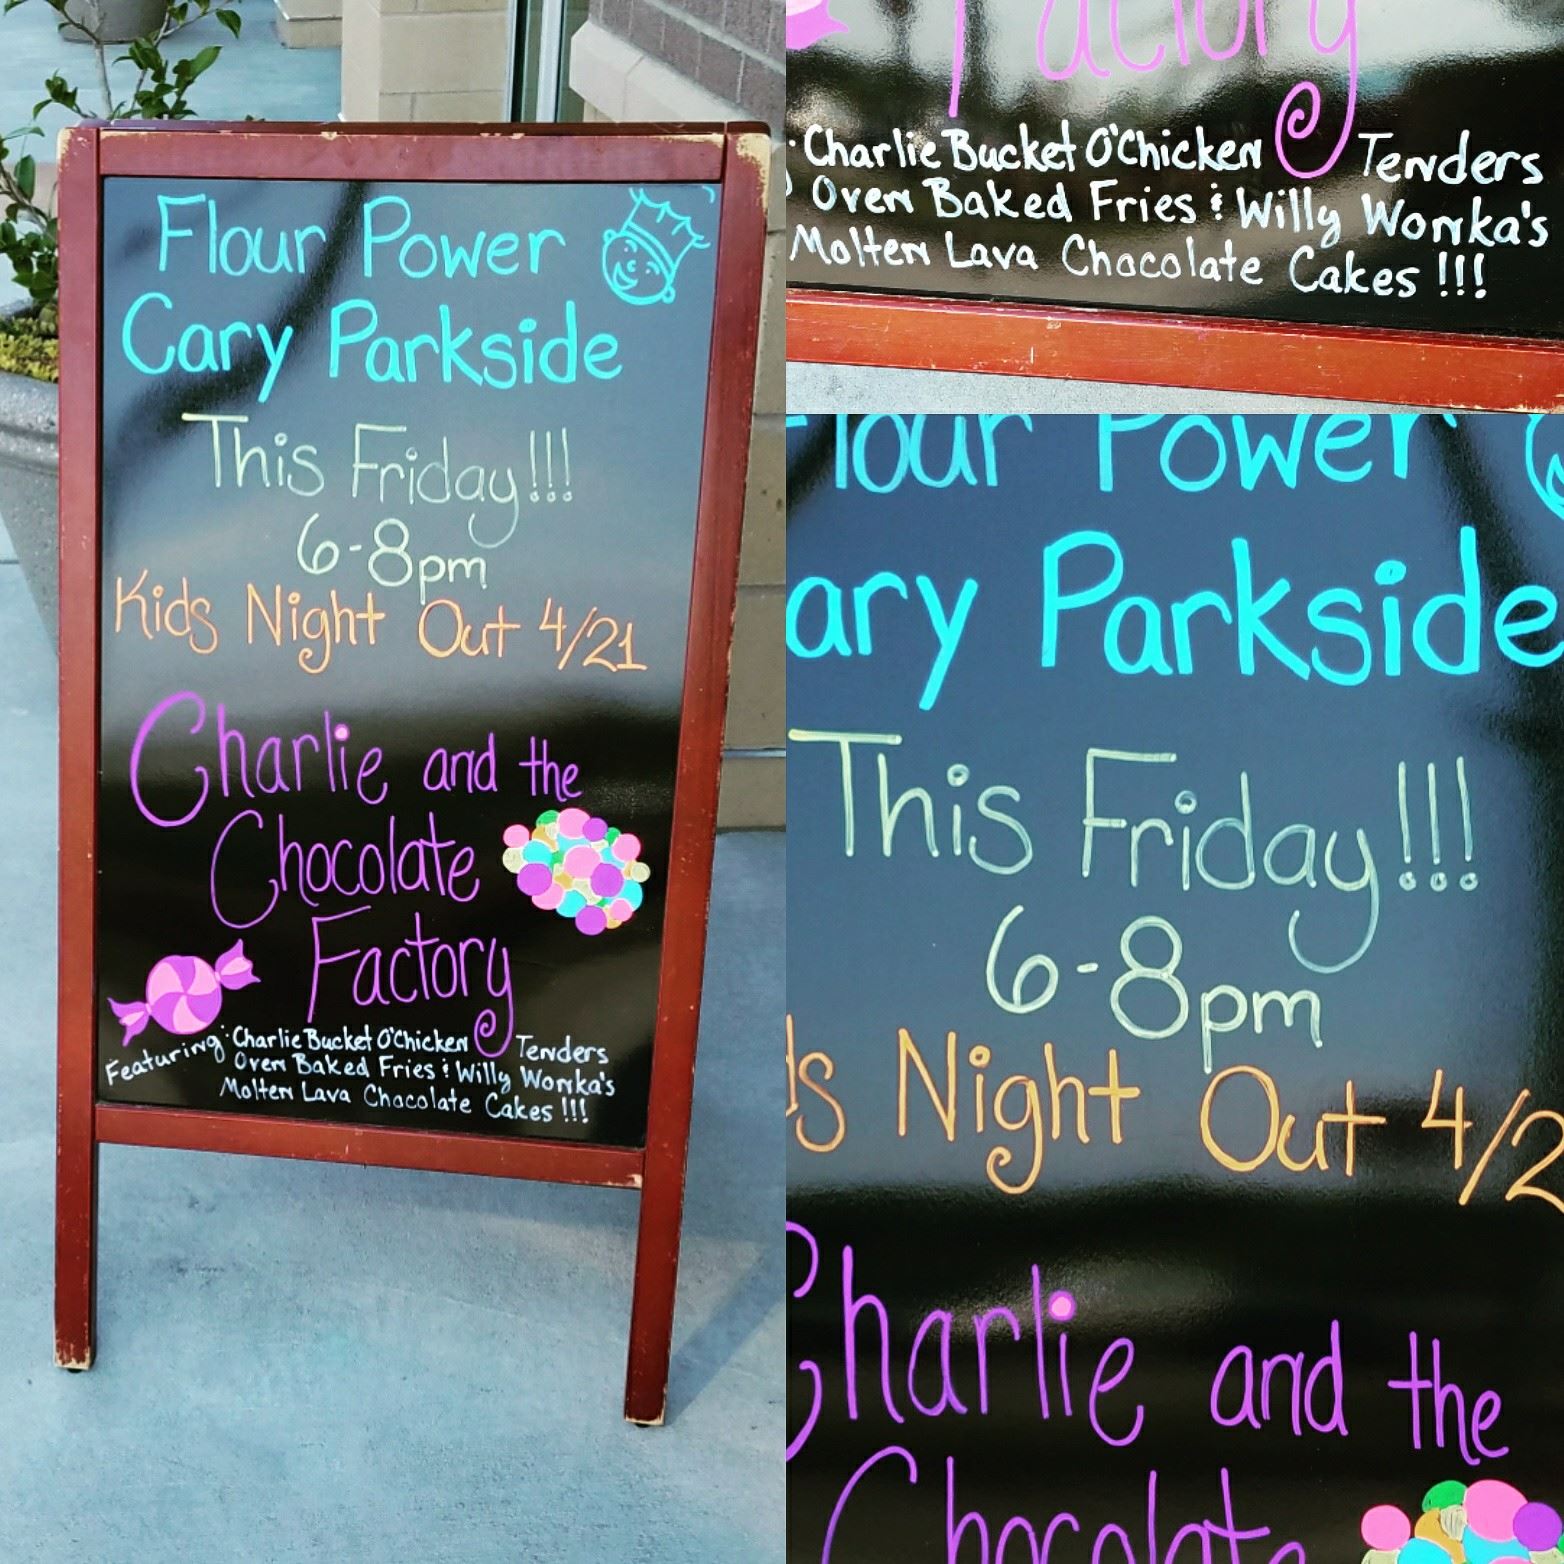 Flour Power
Cary Parkside
This Friday!!!
6-8pm
Kids Night Out 4/21
Charlie and the
Chocolate
Factory
Featuring: Charlie Bucket O'Chicken Tenders
Oven Baked Fries & Willy Wonka's
Molten Lava Chocolate Cakes !!!
Factory
Charlie Bucket O'Chicken Tenders
Oven Baked Fries & Willy Wonka's
Molten Lava Chocolate Cakes !!!
lour Power
ary Parkside
This Friday!!!
6-8pm
ds Night Out 4/2
Charlie and the
Chocolate